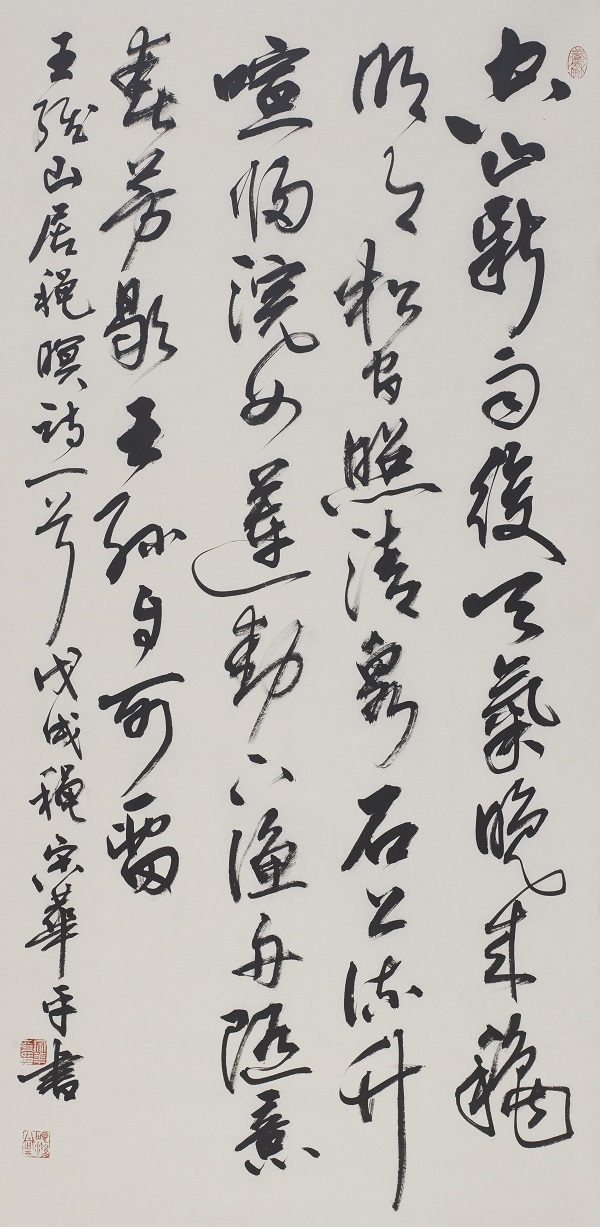 空山新雨後天氣晚來龝
明月松間照清泉石上流竹
喧歸浣女蓮動下漁舟隨意
春芳歇王孫自可留
王維山居龝暝詩一首 戊戌龝宋華平書